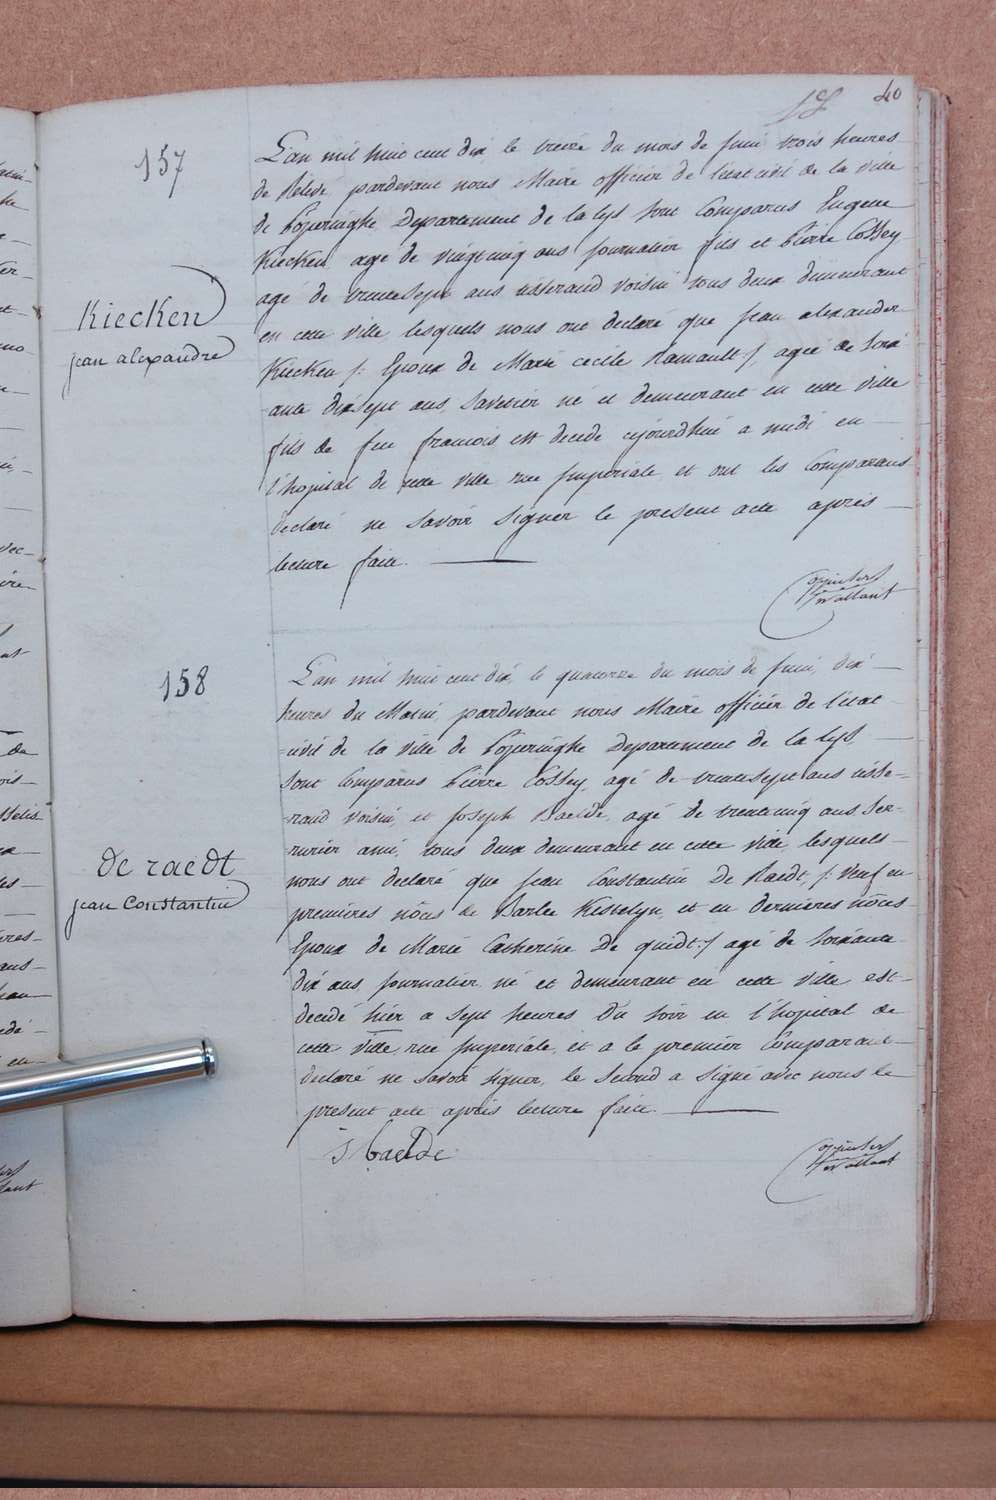 40
157
L'an mil huit cent dix, le treize du mois de Juin trois heures
de Relevé pardevant nous Maire officier de l'etat civil de la ville
de Poperinghe Departement de la Lys sont Comparus Eugene
Kiecken agé de vingtcinq ans journalier fils et Pierre Cossey
agé de trentesept ans tisserand voisin tous deux demeurant
en cette ville, lesquels nous ont declaré que Jean alexander
Kiecken /: Epoux de Marie cecile Ramault :/ agé de soix
ante dixsept ans, Savetier né et demeurant en cette ville
fils de feu francois est decede cejourdhui a midi en
l'hopital de cette ville rue Imperiale, et ont les Comparans
declaré ne savoir signer le present acte après
lecture faite.
Kiecken
jean alexandre
158
L'an mil huit cent dix, le quatorze du mois de Juin, dix
heures du Matin, pardevant nous Maire officier de l'état
civil de la ville de Poperinghe Departement de la Lys,
sont Comparus Pierre Cossey, agé de trentesept ans tisse-
rand voisin, et Joseph Baelde, agé de trentecinq ans, Ser-
rurier ami, tous deux demeurant en cette ville, lesquels
nous ont declaré que Jean Constantin De Raedt, /: Veuf en
premières nôces de Barbe Kestelyn, et en dernières nôces
Epoux de Marie Catherine De quidt :/ agé de soixante
dix ans, journalier, né et demeurant en cette ville est
decedé hier a sept heures du soir en l'hopital de
cette ville, rue Imperiale, et a le premier Comparant
declaré ne savoir signer, le second a signé avec nous le
present acte après lecture faite.
de raedt
jean Constantin
J Baelde